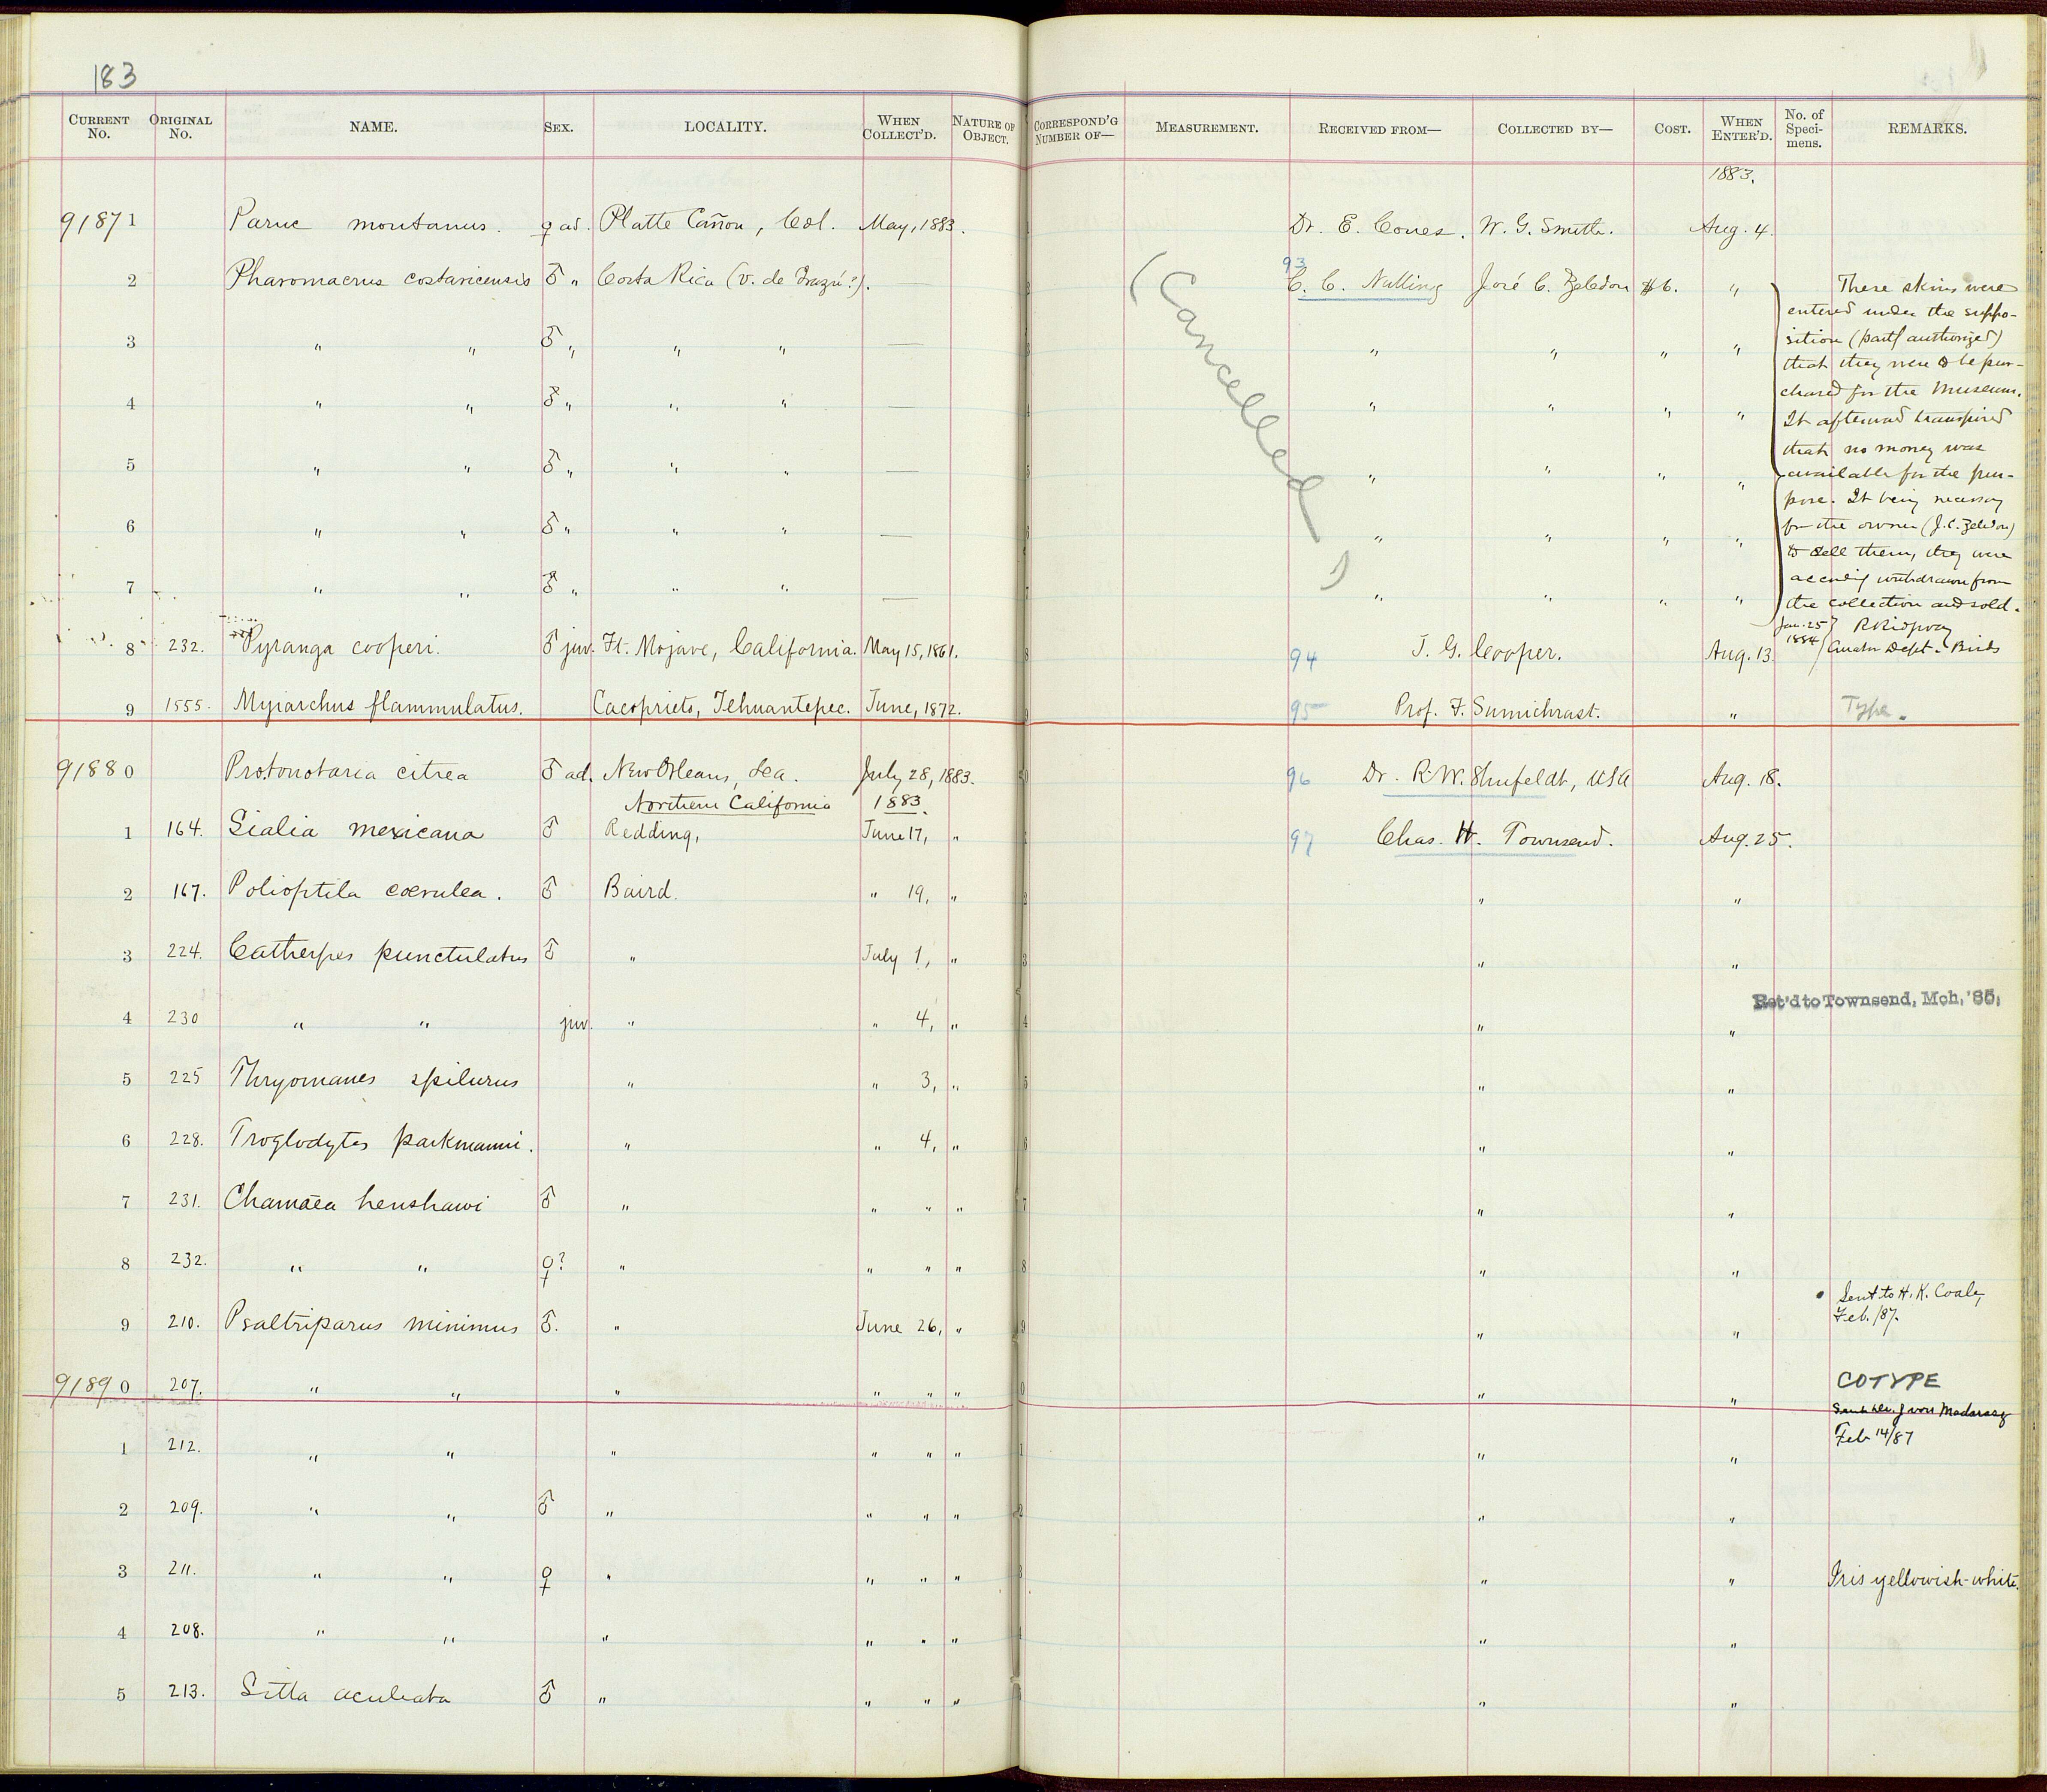 183
CURRENT No. ORIGINAL No. NAME. SEX. LOCALITY. WHEN COLLECT'D. NATURE OF OBJECT. CORRESPOND'G NUMBER OF— MEASUREMENT. RECEIVED FROM— COLLECTED BY— COST. WHEN ENTER'D. No. of Speci-mens. REMARKS.
1883.
91871 Parus montanus. ♀ ad. Platte Cañon, Col. May, 1883. Dr. E. Coues. W. G. Smith. Aug. 4.
93
2 Pharomacrus costaricensis ♂ " Costa Rica (V. de Irazú?). C. C. Nutting José C. Zeledon $6. "
3 " " ♂ " " " — " " " "
4 " " ♂ " " " — " " " "
5 " " ♂ " " " — " " " "
6 " " ♂ " " " — " " " "
7 " " ♂ " " " — " " " "
(Cancelled)
These skins were
entered under the suppo-
sition (part authorized)
that they were to be pur-
chased for the Museum.
It afterward transpired
that no money was
available for the pur-
pose. It being necessary
for the owner (J. C. Zeledon)
to sell them, they were
withdrawn from
the collection and sold.
Jan. 25 1884 R Ridgway
Curator Dept. Birds
8 232. Pyranga cooperi. ♂ juv. Ft. Mojave, California. May 15, 1861. 94 J. G. Cooper. Aug. 13
9 1555. Myiarchus flammulatus. Cacoprieto, Tehuantepec. June, 1872. 95 Prof. F. Sumichrast. " Type.
91880 Protonotaria citrea ♂ ad. New Orleans, La. July 28, 1883. 96 Dr. R. W. Shufeldt, USA Aug. 18.
Northern California 1883.
1 164. Sialia mexicana ♂ Redding, June 17, " 97 Chas. H. Townsend. Aug. 25.
2 167. Polioptila cœrulea. ♂ Baird. " 19, " " "
3 224. Catherpes punctulatus ♂ " July 1, " " "
Ret'd to Townsend, Mch, '85,
4 230 " " juv. " " 4, " " "
5 225 Thryomanes spilurus " " 3, " " "
6 228. Troglodytes parkmanni. " " 4, " " "
7 231. Chamæa henshawi ♂ " " " " " "
8 232. " " ♀? " " " " " "
9 210. Psaltriparus minimus ♂. " June 26, " " " Sent to H. K. Coale,
Feb. /87.
91890 207. " " " " " " " " COTYPE
Sent J von Madarasz
Feb 14/87
1 212. " " " " " " " "
2 209. " " ♂ " " " " " "
3 211. " " ♀ " " " " " " Iris yellowish-white.
4 208. " " " " " " " "
5 213. Sitta aculeata ♂ " " " " " "